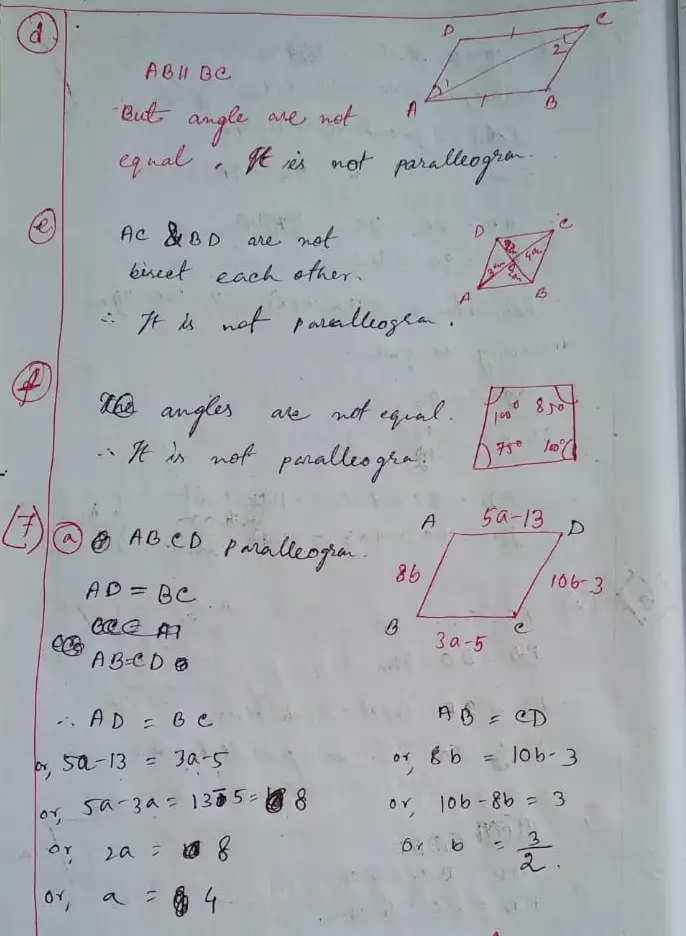 (d)
D C
2
1
A B
AB || BC
But angle are not
equal. It is not paralleogram.
(e)
D C
4cm
3cm
A B
AC & BD are not
bisect each other.
∴ It is not paralleogram.
(f)
The angles are not equal.
100° 85°
75° 100°
∴ It is not paralleogra.
(7) (a) ABCD paralleogram.
A 5a-13 D
8b 10b-3
B 3a-5 C
AD = BC
AB = CD
∴ AD = BC
or, 5a-13 = 3a-5
or, 5a-3a = 13-5 = 8
or, 2a = 8
or, a = 4
AB = CD
or, 8b = 10b-3
or, 10b-8b = 3
or b = 3/2.